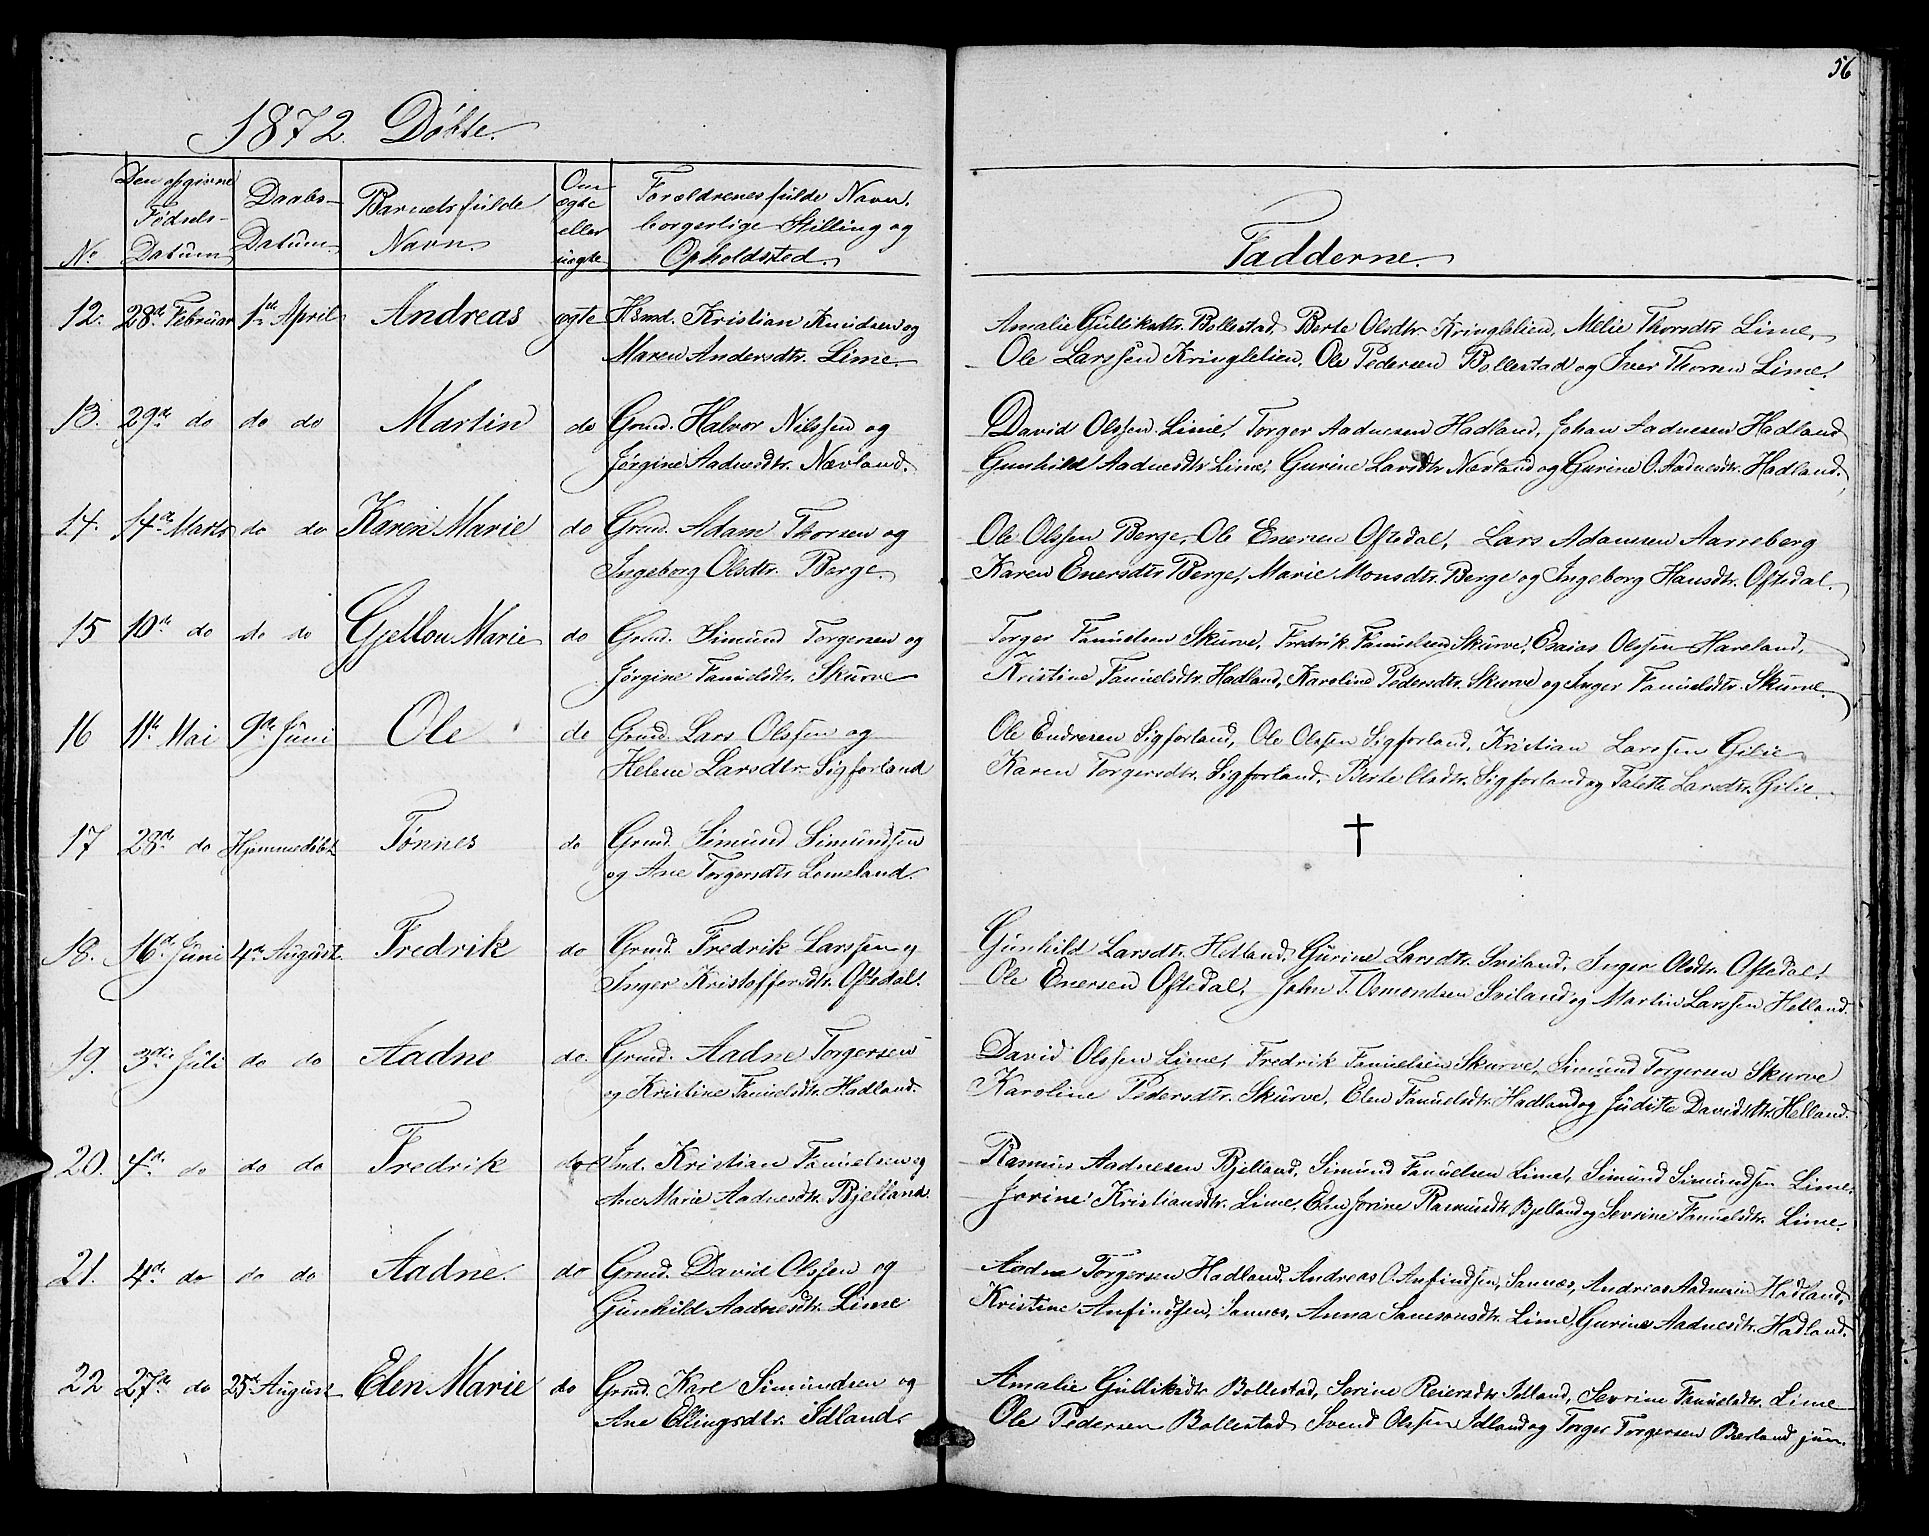 56
1872. Døbte.
No
Den opgivne Fødsels-Datum
Daabs-Datum
Barnets fulde Navn.
Om ægte eller uægte
Forældrenes fulde Navn, borgerlige Stilling og Opholdsted.
Fadderne.
12. 28de Februar 1ste April Andreas ægte Hsmd. Kristian Knudsen og
Maren Andersdtr. Lime.
Amalie Gulliksdtr. Bollestad, Berte Olsdtr. Kringlelien, Melie Thorsdtr. Lime,
Ole Larssen Kringlelien, Ole Pedersen Bollestad og Iver Thorsen Lime.
13. 29de do do do Martin do Grmd. Halvor Nilssen og
Jørgine Aadnesdtr. Nævland.
David Olssen Lime, Torger Aadnesen Hadland, Johan Aadnesen Hadland
Gunhild Aadnesdtr Lime, Gurine Larsdtr. Nævland og Gurine O. Aadnesdtr. Hadland.
14. 14de Marts do do Karen Marie do Grmd. Adam Thorsen og
Ingeborg Olsdtr. Berge.
Ole Olssen Berge, Ole Enersen Oftedal, Lars Adamsen Aarreberg
Karen Enersdtr Berge, Marie Monsdtr. Berge og Ingeborg Hansdtr. Oftedal.
15 10de do do do Gjellou Marie do Grmd. Simund Torgersen og
Jørgine Fanuelsdtr. Skurve
Torger Fanuelsen Skurve, Fredrik Fanuelsen Skurve, Esaias Olssen Haveland,
Kristine Fanuelsdtr. Hadland, Karoline Pedersdtr. Skurve og Inger Fanuelsdtr. Skurve.
16 11te Mai 9de Juni Ole do Grmd. Lars Olssen og
Helene Larsdtr. Sigforland
Ole Endresen Sigforland, Ole Olssen Sigforland, Kristian Larssen Gilie
Karen Torgersdtr. Sigforland, Berte Olsdtr. Sigforland og Talette Larsdtr. Gilie.
17 28de do Hjemmedøbt Tønnes do Grmd. Simund Simundsen
og Ane Torgersdtr. Lomeland.
†
18. 16de Juni 4de August. Fredrik do Grmd. Fredrik Larssen og
Inger Kristoffersdtr. Oftedal.
Gunhild Larsdtr. Hetland, Gurine Larsdtr. Sviland, Inger Olsdtr. Oftedal,
Ole Enersen Oftedal, John T. Osmondsen Sviland og Martin Larssen Hetland.
19. 3die Juli do do Aadne do. Grmd. Aadne Torgersen
og Kristine Fanuelsdtr. Hadland.
David Olssen Lime, Fredrik Fanuelsen Skurve, Simund Torgersen Skurve
Karoline Pedersdtr. Skurve, Elen Fanuelsdtr. Hadland og Juditte Davidsdtr. Helland.
20. 4de do do do Fredrik do Ind. Kristian Fanuelsen og
Ane Marie Aadnesdtr. Bjelland.
Rasmus Aadnesen Bjelland, Simund Fanuelsen Lime, Simund Simundsen Lime,
Jorine Kristiansdtr. Lime, Elen Jorine Rasmusdtr Bjelland og Sevrine Fanuelsdtr. Lime.
21. 4de do do do Aadne. do Grmd. David Olssen og
Gunhild Aadnesdtr. Lime
Aadne Torgersen Hadland, Andreas O. Anfindsen, Sannes, Andreas Aadnesen Hadland,
Kristine Anfindsen, Sannes, Anna Samsonsdtr. Lime, Gurine Aadnesdtr. Hadland.
22 27de do 25de August Elen Marie do Grmd. Karl Simundsen og
Ane Ellingsdtr. Idland.
Amalie Gulliksdtr Bollestad, Sorine Reiersdtr Idland, Sevrine Fanuelsdtr. Lime
Ole Pedersen Bollestad, Svend Olssen Idland og Torger Torgersen Bærland jun.